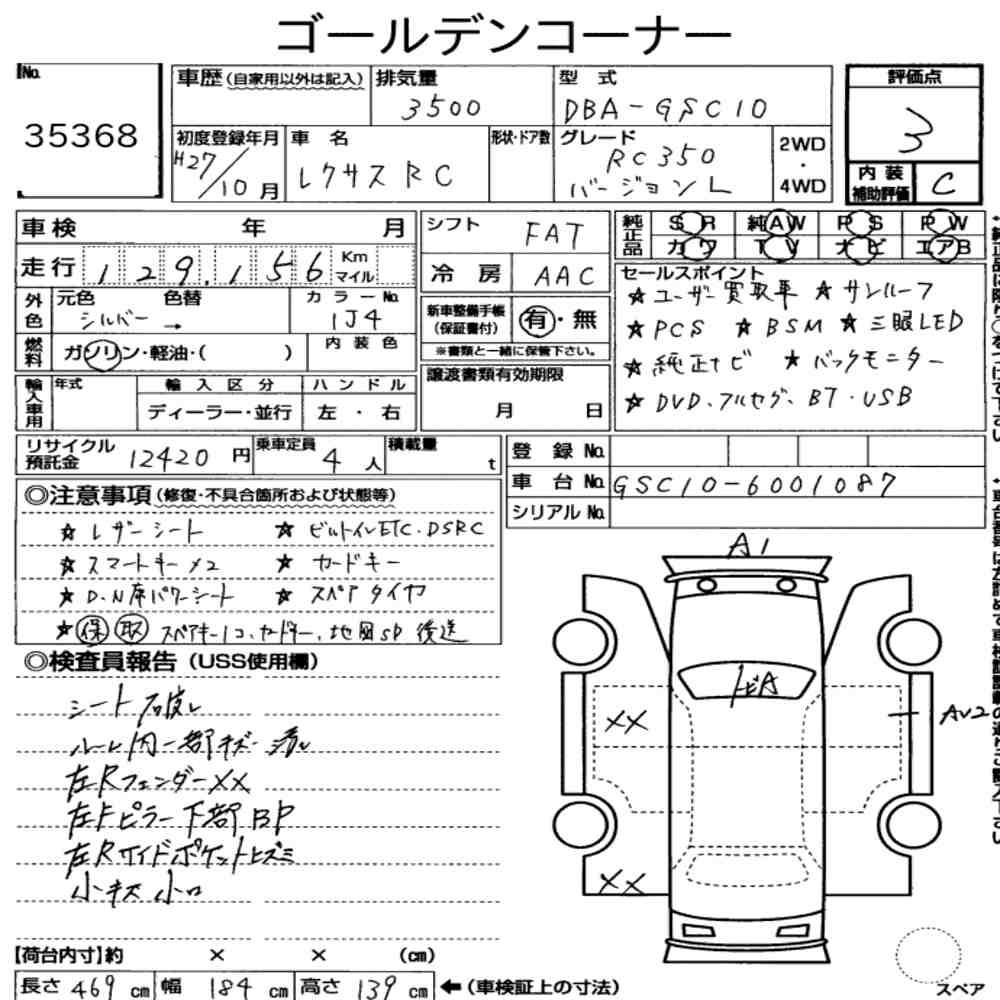 ゴールデンコーナー
No.
35368
車歴(自家用以外は記入)
排気量
3500
型 式
DBA-GSC10
評価点
3
初度登録年月
H27/10月
車 名
レクサス RC
形状・ドア数
グレード
RC350
バージョンL
2WD
・
4WD
内 装
補助評価
C
車検 年 月
走行 129,156 Km
マイル
外色
元色 色替
シルバー →
カラーNo.
1J4
燃料
ガソリン・軽油・( )
内装色
輸入車用
年式
輸入区分
ディーラー・並行
ハンドル
左・右
シフト
FAT
冷 房
AAC
新車整備手帳
(保証書付)
有・無
※書類と一緒に保管下さい。
譲渡書類有効期限
月 日
純正品
SR
純AW
PS
PW
カワ
TV
ナビ
エアB
セールスポイント
☆ユーザー買取車 ☆サンルーフ
☆PCS ☆BSM ☆三眼LED
☆純正ナビ ☆バックモニター
☆DVD、フルセグ、BT・USB
リサイクル
預託金 12420 円
乗車定員
4 人
積載量
t
登 録 No.
車 台 No. GSC10-6001087
シリアル No.
◎注意事項(修復・不具合箇所および状態等)
☆レザーシート ☆ビルトインETC.DSRC
☆スマートキー×2 ☆カードキー
☆D.N席パワーシート ☆スペアタイヤ
☆保 取 スペアキー1コ、カードキー、地図SD 後送
◎検査員報告(USS使用欄)
シート
ルーム内一部キズ
左Rフェンダー XX
左Fピラー下部BP
左Rサイドポケットヒズミ
小キズ 小凹
A1
XX
XX
【荷台内寸】約 × × (cm)
長さ 469 cm 幅 184 cm 高さ 139 cm ←(車検証上の寸法)
スペア